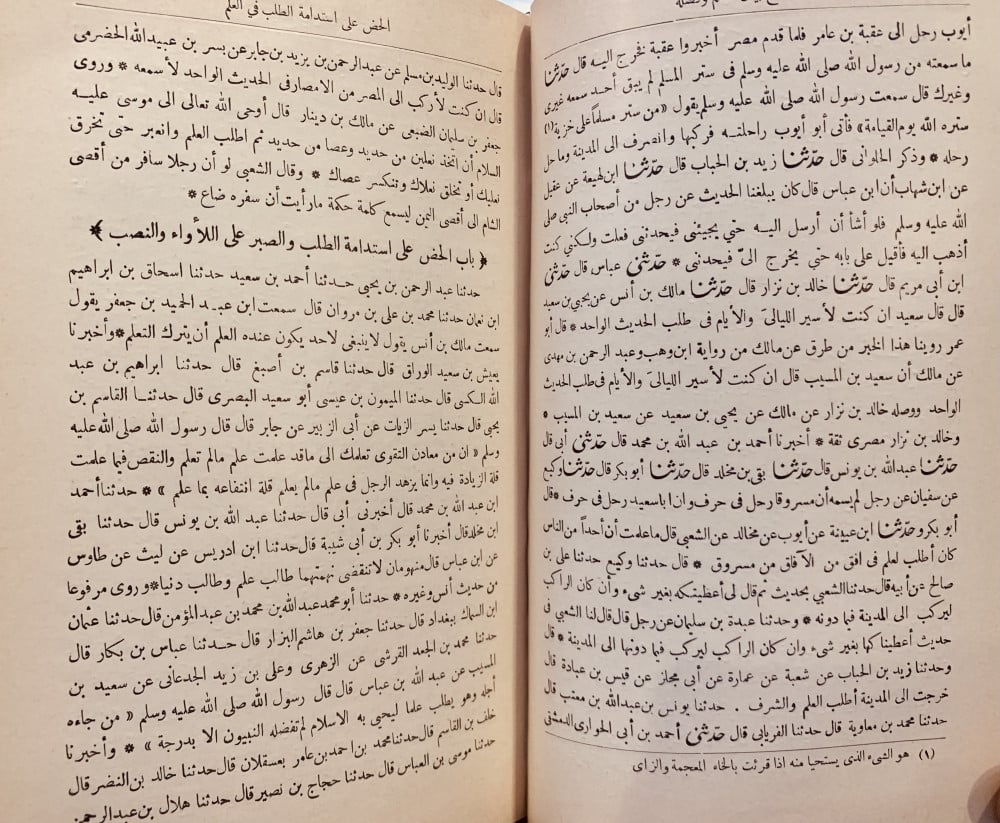 أيوب رحل الى عقبة بن عامر فلما قدم مصر أخبروا عقبة فخرج اليه قال حدثنا
ما سمعته من رسول الله صلى الله عليه وسلم فى ستر المسلم لم يبق أحد سمعه غيرى
وغيرك قال سمعت رسول الله صلى الله عليه وسلم يقول «من ستر مسلماً على خزية(١)
ستره الله يوم القيامة» فأتى أبو أيوب راحلته فركبها وانصرف الى المدينة وما حل
رحله * وذكر الحلوانى قال حدثنا زيد بن الحباب قال حدثنا ابن لهيعة عن عقيل
عن ابن شهاب أن ابن عباس قال كان يبلغنا الحديث عن رجل من أصحاب النبى صلى
الله عليه وسلم فلو أشأ أن أرسل اليه حتي يجيئنى فيحدثنى فعلت ولكني كنت
أذهب اليه فأقيل على بابه حتي يخرج الىّ فيحدثنى * حدثنى عباس قال حدثنى
ابن أبى مريم قال حدثنا خالد بن نزار قال حدثنا مالك بن أنس عن يحيى بن سعيد
قال قال سعيد ان كنت لأسير الليالى والأيام فى طلب الحديث الواحد * قال أبو
عمر روينا هذا الخبر من طرق عن مالك من رواية ابن وهب وعبد الرحمن بن مهدى
عن مالك أن سعيد بن المسيب قال ان كنت لأسير الليالى والأيام فى طلب الحديث
الواحد ووصله خالد بن نزار عن مالك عن يحيى بن سعيد عن سعيد بن المسيب *
وخالد بن نزار مصرى ثقة * أخبرنا أحمد بن عبد الله بن محمد قال حدثنى أبى قال
حدثنا عبد الله بن يونس قال حدثنا بقى بن مخلد قال حدثنا أبو بكر قال حدثنا وكيع
عن سفيان عن رجل لم يسمه أن مسروقا رحل فى حرف وان ابا سعيد رحل فى حرف * قال
أبو بكر وحدثنا ابن عيينة عن أيوب عن مخالد عن الشعبى قال ما علمت أن أحداً من الناس
كان أطلب لعلم فى افق من الآفاق من مسروق * قال حدثنا وكيع حدثنا على بن
صالح عن أبيه قال حدثنا الشعبى بحديث ثم قال لى أعطيتكه بغير شىء وأن كان الراكب
ليركب الى المدينة فيما دونه * وحدثنا عبدة بن سليمان عن رجل قال قال لنا الشعبى فى
حديث أعطيناكها بغير شىء وان كان الراكب ليركب فيما دونها الى المدينة * قال
وحدثنا زيد بن الحباب عن شعبة عن عمارة عن أبى مجلز عن قيس بن عبادة قال
خرجت الى المدينة أطلب العلم والشرف . حدثنا يونس بن عبد الله بن معتب قال
حدثنا محمد بن معاوية قال حدثنا الفريابى قال حدثنى أحمد بن أبى الحوارى الدمشقى
(١) هو الشىء الذى يستحيا منه اذا قرئت بالخاء المعجمة والزاى
الحض على استدامة الطلب في العلم
قال حدثنا الوليد بن مسلم عن عبد الرحمن بن يزيد بن جابر عن بسر بن عبيد الله الحضرمى
قال ان كنت لأركب الى المصر من الامصار فى الحديث الواحد لأسمعه * وروى
جعفر بن سليمان الضبعى عن مالك بن دينار قال أوحى الله تعالى الى موسى عليه
السلام أن اتخذ نعلين من حديد وعصا من حديد ثم اطلب العلم وانعبر حتى تخرق
نعليك أو تخلق نعلاك وتنكسر عصاك * وقال الشعبى لو أن رجلا سافر من أقصى
الشام الى أقصى اليمن ليسمع كلمة حكمة ما رأيت أن سفره ضاع *
﴿ باب الحض على استدامة الطلب والصبر على اللأواء والنصب ﴾
حدثنا عبد الرحمن بن يحيى حدثنا أحمد بن سعيد حدثنا اسحاق بن ابراهيم
ابن نعمان حدثنا محمد بن على بن مروان قال سمعت ابن عبد الحميد بن جعفر يقول
سمعت مالك بن أنس يقول لا ينبغى لاحد يكون عنده العلم أن يترك التعلم * وأخبرنا
يعيش بن سعيد الوراق قال حدثنا قاسم بن أصبغ قال حدثنا ابراهيم بن عبد
الله الكسى قال حدثنا الميمون بن عيسى أبو سعيد البصرى قال حدثنا القاسم بن
يحيى قال حدثنا يسر الزيات عن أبى الزبير عن جابر قال قال رسول الله صلى الله عليه
وسلم « ان من معادن التقوى تعلمك الى ماقد علمت علم مالم تعلم والنقص فيما علمت
قلة الزيادة فيه وانما يزهد الرجل فى علم مالم يعلم قلة انتفاعه بما علم » * حدثنا أحمد
ابن عبد الله بن محمد قال أخبرنى أبى قال حدثنا عبد الله بن يونس قال حدثنا بقى
ابن مخلد قال أخبرنا أبو بكر بن أبى شيبة قال حدثنا ابن ادريس عن ليث عن طاوس
عن ابن عباس قال منهومان لا تنقضى نهمتهما طالب علم وطالب دنيا * وروى مرفوعا
من حديث أنس وغيره * حدثنا أبو محمد عبد الله بن محمد بن عبد المؤمن قال حدثنا عثمان
ابن السماك ببغداد قال حدثنا جعفر بن هاشم البزار قال حدثنا عباس بن بكار قال
حدثنا محمد بن الجعد القرشى عن الزهرى وعلى بن زيد الجدعانى عن سعيد بن
المسيب عن عبد الله بن عباس قال قال رسول الله صلى الله عليه وسلم « من جاءه
أجله وهو يطلب علما ليحيى به الاسلام لم تفضله النبيون الا بدرجة » * وأخبرنا
خلف بن القاسم قال حدثنا محمد بن احمد بن عامر بعسقلان قال حدثنا خالد بن النضر قال
حدثنا موسى بن العباس قال حدثنا حجاج بن نصير قال حدثنا هلال بن عبد الرحمن